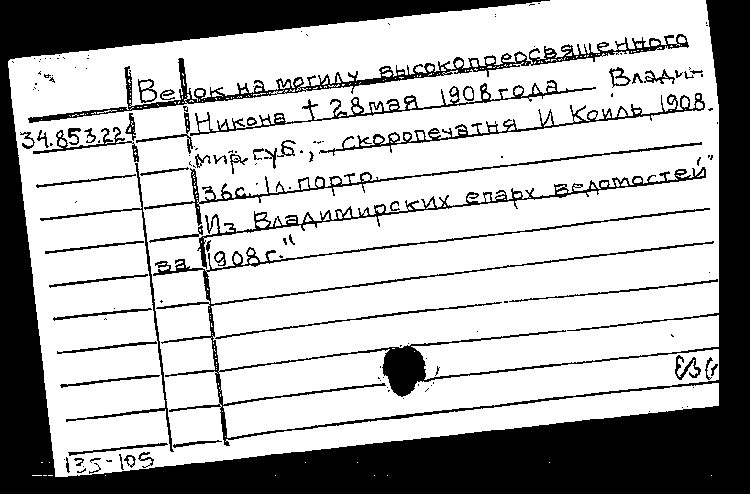 Венок на могилу высокопреосвященного
34.853.224 Никона † 28 мая 1908 года. Влади-
мир. губ., -, скоропечатня И Коиль, 1908.
36с., 1л. портр.
Из Владимирских епарх ведомостей"
за 1908 г."
135-105